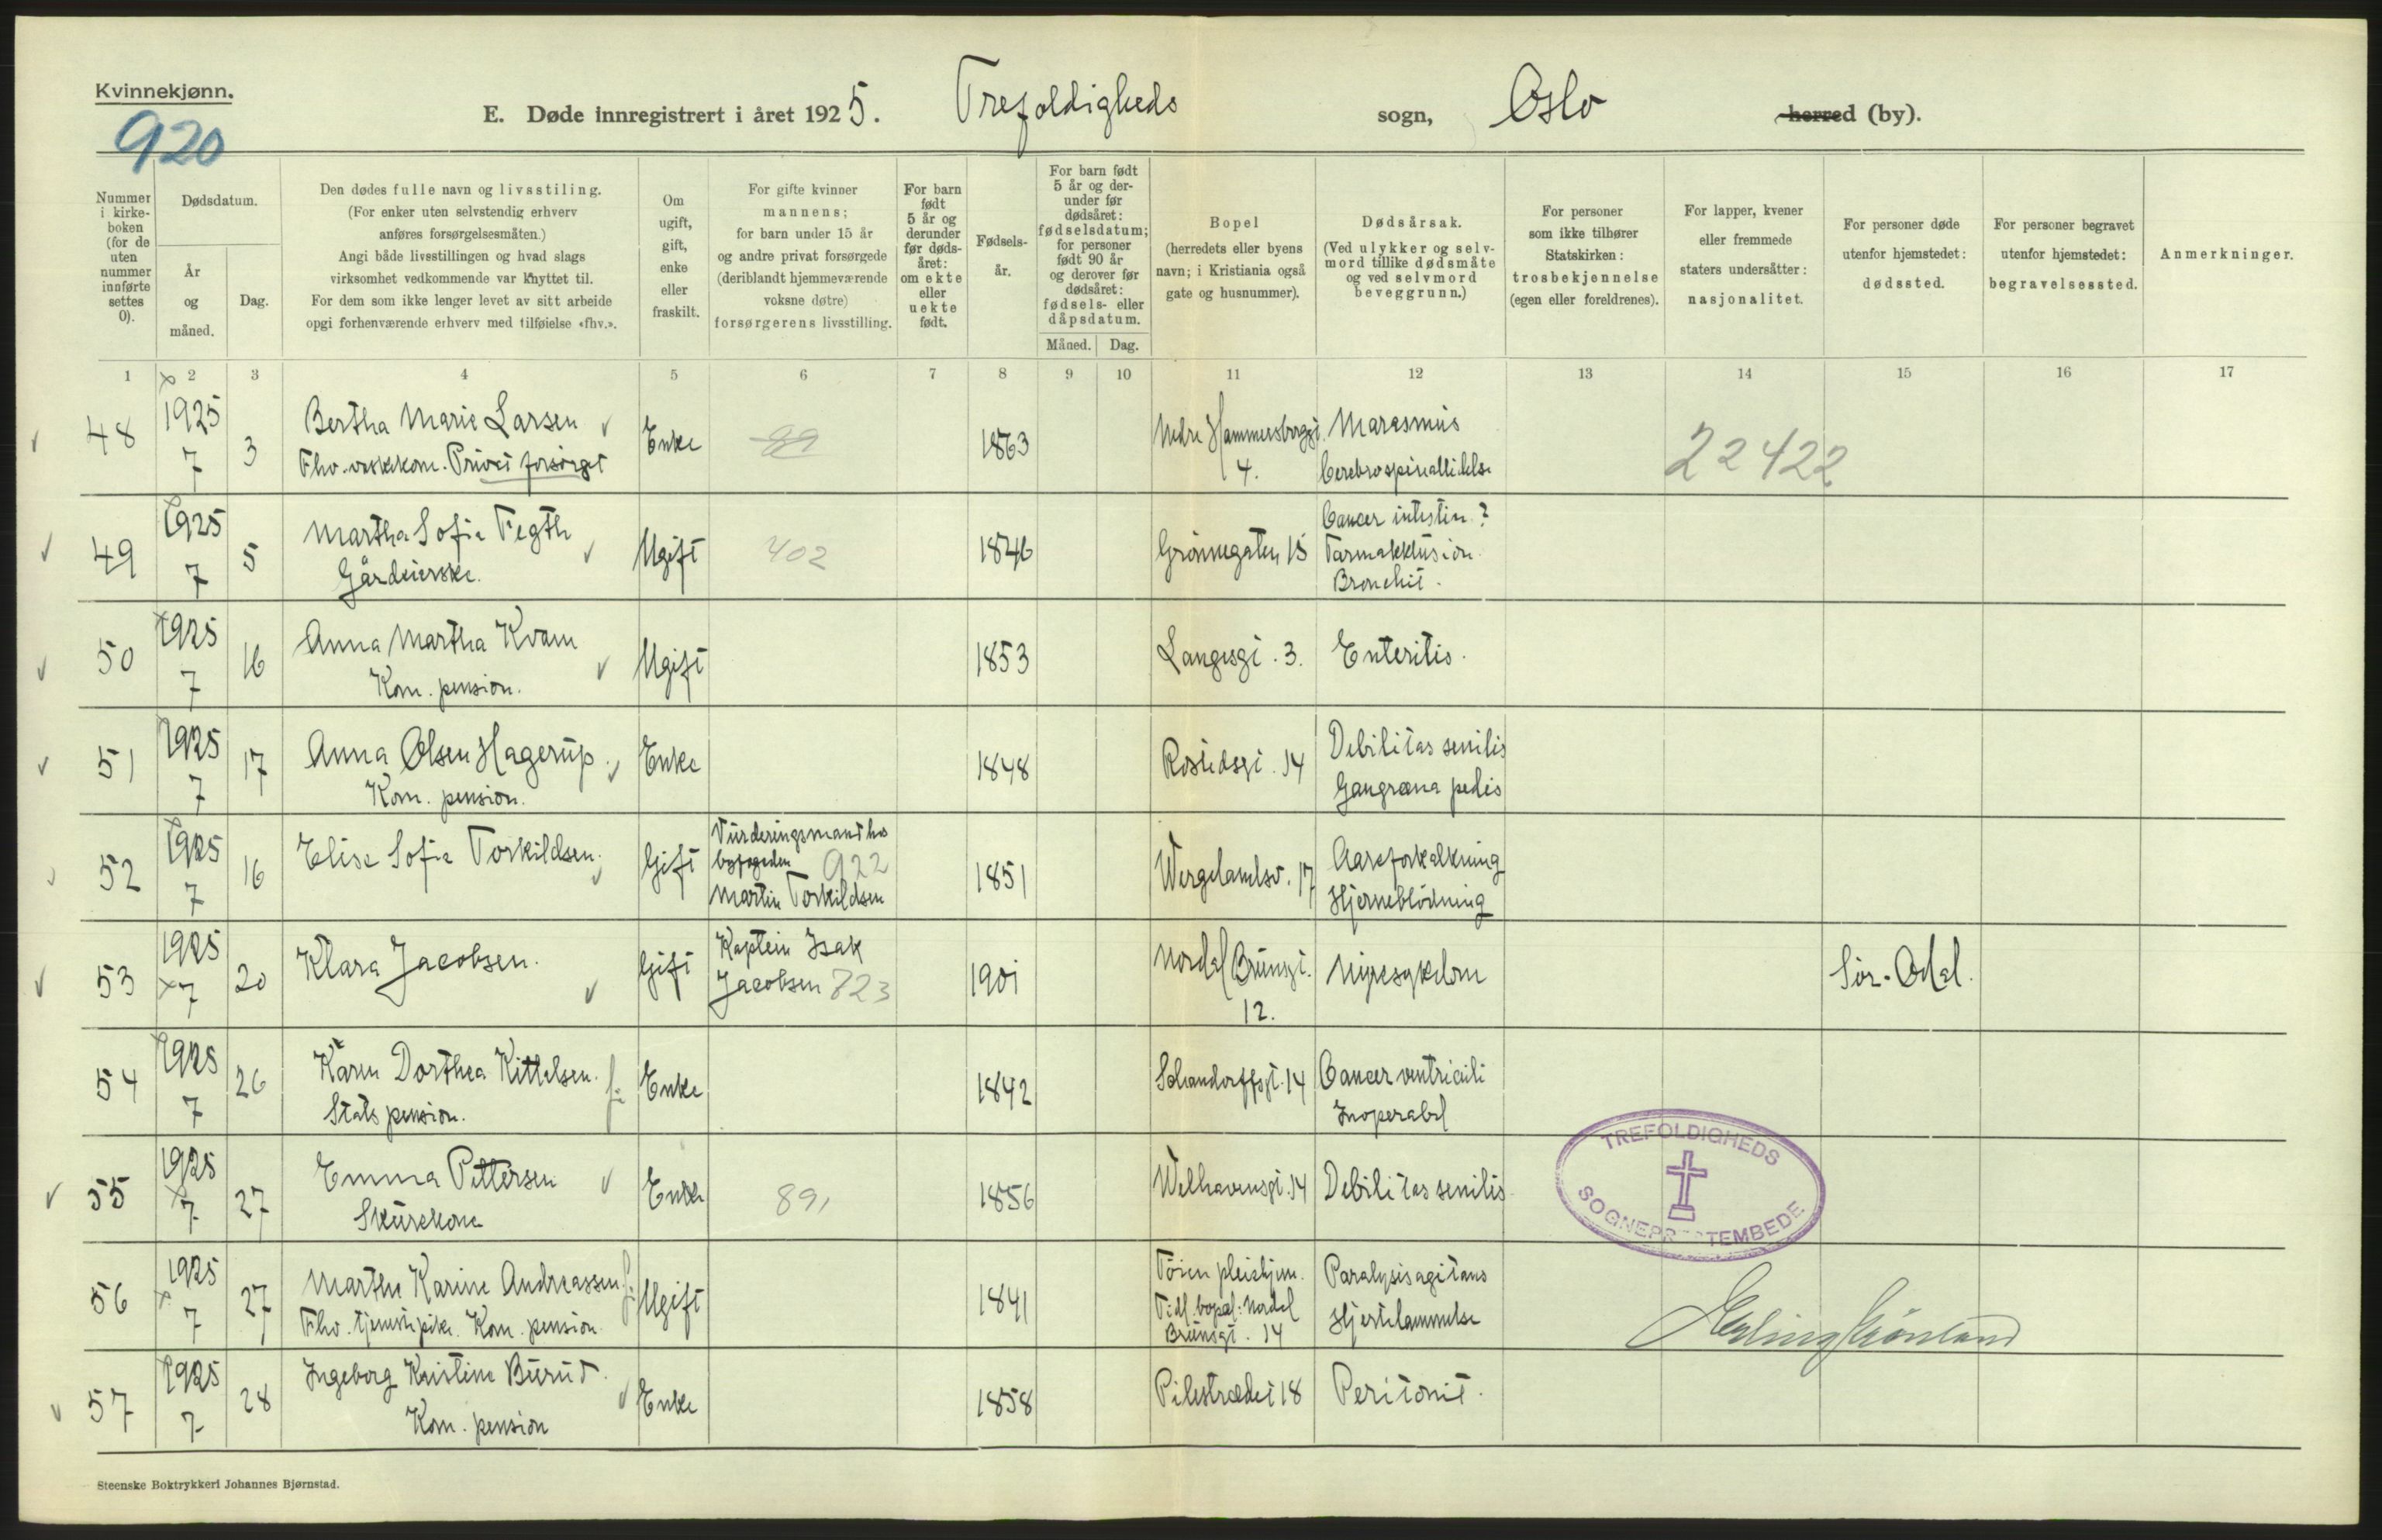 Kvinnekjønn.
920
E. Døde innregistrert i året 1925. Trefoldigheds sogn, Oslo herred (by).
Nummer i kirke- boken (for de uten nummer innførte settes 0).
Dødsdatum.
År og måned.
Dag.
Den dødes fulle navn og livsstiling.
(For enker uten selvstendig erhverv
anføres forsørgelsesmåten.)
Angi både livsstillingen og hvad slags
virksomhet vedkommende var knyttet til.
For dem som ikke lenger levet av sitt arbeide
opgi forhenværende erhverv med tilføielse «fhv.».
Om ugift, gift, enke eller fraskilt.
For gifte kvinner
mannens;
for barn under 15 år
og andre privat forsørgede
(deriblandt hjemmeværende
voksne døtre)
forsørgerens livsstilling.
For barn født 5 år og derunder før døds- året: om ekte eller uekte født.
Fødsels- år.
For barn født 5 år og der- under før dødsåret: fødselsdatum; for personer født 90 år og derover før dødsåret: fødsels- eller dåpsdatum.
Måned. Dag.
Bopel
(herredets eller byens
navn; i Kristiania også
gate og husnummer).
Dødsårsak.
(Ved ulykker og selv-
mord tillike dødsmåte
og ved selvmord
beveggrunn.)
For personer
som ikke tilhører
Statskirken:
trosbekjennelse
(egen eller foreldrenes).
For lapper, kvener
eller fremmede
staters undersåtter:
nasjonalitet.
For personer døde
utenfor hjemstedet:
dødssted.
For personer begravet
utenfor hjemstedet:
begravelsessted.
Anmerkninger.
1 2 3 4 5 6 7 8 9 10 11 12 13 14 15 16 17
48 1925 7 3 Bertha Marie Larsen
Fhv. vaskkone. Privat forsørget
Enke 89 1863 Nedre Hammersborggt. 4.
Marasmus
Cerebrospinallidelse
22422
49 1925 7 5 Martha Sofie Fegth
Gårdeierske.
Ugift 402 1846 Grønnegaten 15
Cancer intestin.?
Tarmokklusion.
Bronchit.
50 1925 7 16 Anna Martha Kvam
Kom. pension.
Ugift 1853 Langesgt. 3. Enteritis.
51 1925 7 17 Anna Olsen Hagerup.
Kom. pension.
Enke 1848 Rostedsgt. 14
Debilitas senilis
Gangræna pedis
52 1925 7 16 Elise Sofie Torkildsen.
Gift
Vurderingsmand hos
byfogeden 922
Martin Torkildsen
1851 Wergelandsv. 17
Aareforkalkning
Hjerneblødning
53 1925 7 20 Klara Jacobsen.
Gift
Kaptein Isak
Jacobsen 723
1901 Nordal Brunsgt. 12.
Nyresykdom
Sør-Odal.
54 1925 7 26 Karen Dorthea Kittelsen.
Stats pension.
Enke 1842 Schandorffsgt. 14
Cancer ventriculi
Inoperabel
55 1925 7 27 Emma Pettersen
Skurekone
Enke 891 1856 Welhavensgt. 14 Debilitas senilis
56 1925 7 27 Marthe Karine Andreassen
Fhv. tjenestepike. Kom. pension.
Ugift 1841
Tøien pleiehjem.
Tidl. bopæl: Nordal
Brunsgt. 14
Paralysis agitans
Hjertelammelse
57 1925 7 28 Ingeborg Kristine Burud.
Kom. pension
Enke 1858 Pilestrædet 18 Peritonit.
TREFOLDIGHEDS
SOGNEPR TEMBEDE
Erling Grønland
Steenske Boktrykkeri Johannes Bjørnstad.